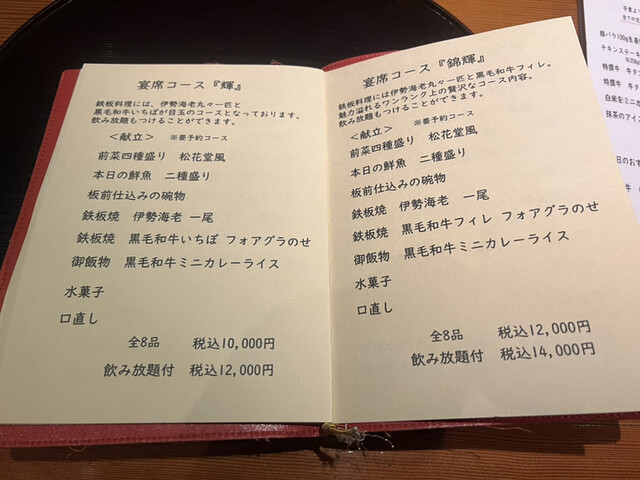 宴席コース『輝』
鉄板料理には、伊勢海老丸々一匹と
黒毛和牛いちぼが目玉のコースとなっております。
飲み放題もつけることができます。
＜献立＞ ※要予約コース
前菜四種盛り 松花堂風
本日の鮮魚 二種盛り
板前仕込みの碗物
鉄板焼 伊勢海老 一尾
鉄板焼 黒毛和牛いちぼ フォアグラのせ
御飯物 黒毛和牛ミニカレーライス
水菓子
口直し
全8品 税込10,000円
飲み放題付 税込12,000円
宴席コース『錦輝』
鉄板料理には伊勢海老丸々一匹と黒毛和牛フィレ。
魅力溢れるワンランク上の贅沢なコース内容。
飲み放題もつけることができます。
＜献立＞ ※要予約コース
前菜四種盛り 松花堂風
本日の鮮魚 二種盛り
板前仕込みの碗物
鉄板焼 伊勢海老 一尾
鉄板焼 黒毛和牛フィレ フォアグラのせ
御飯物 黒毛和牛ミニカレーライス
水菓子
口直し
全8品 税込12,000円
飲み放題付 税込14,000円
全ての
豚バラ100g
チキンステーキ
特撰牛 牛タ
特撰牛 牛タ
白米をミニ
抹茶のアイ
日のおす